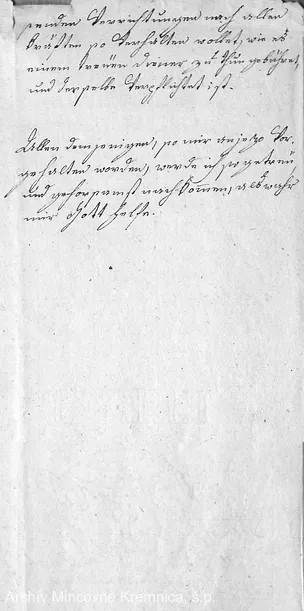 senden Verrichtungen nach allen
Kräften so Verhalten wollet, wie es
einem treuen Diener zu thun gebühret,
und derselbe Verpflichtet ist.
Allen demjenigen, so mir anjezo Vor,
gehalten worden, werde ich so getreu
und gehorsamst nachkommen, als wahr
mir Gott helfe.
Archív Mincovne Kremnica, š.p.